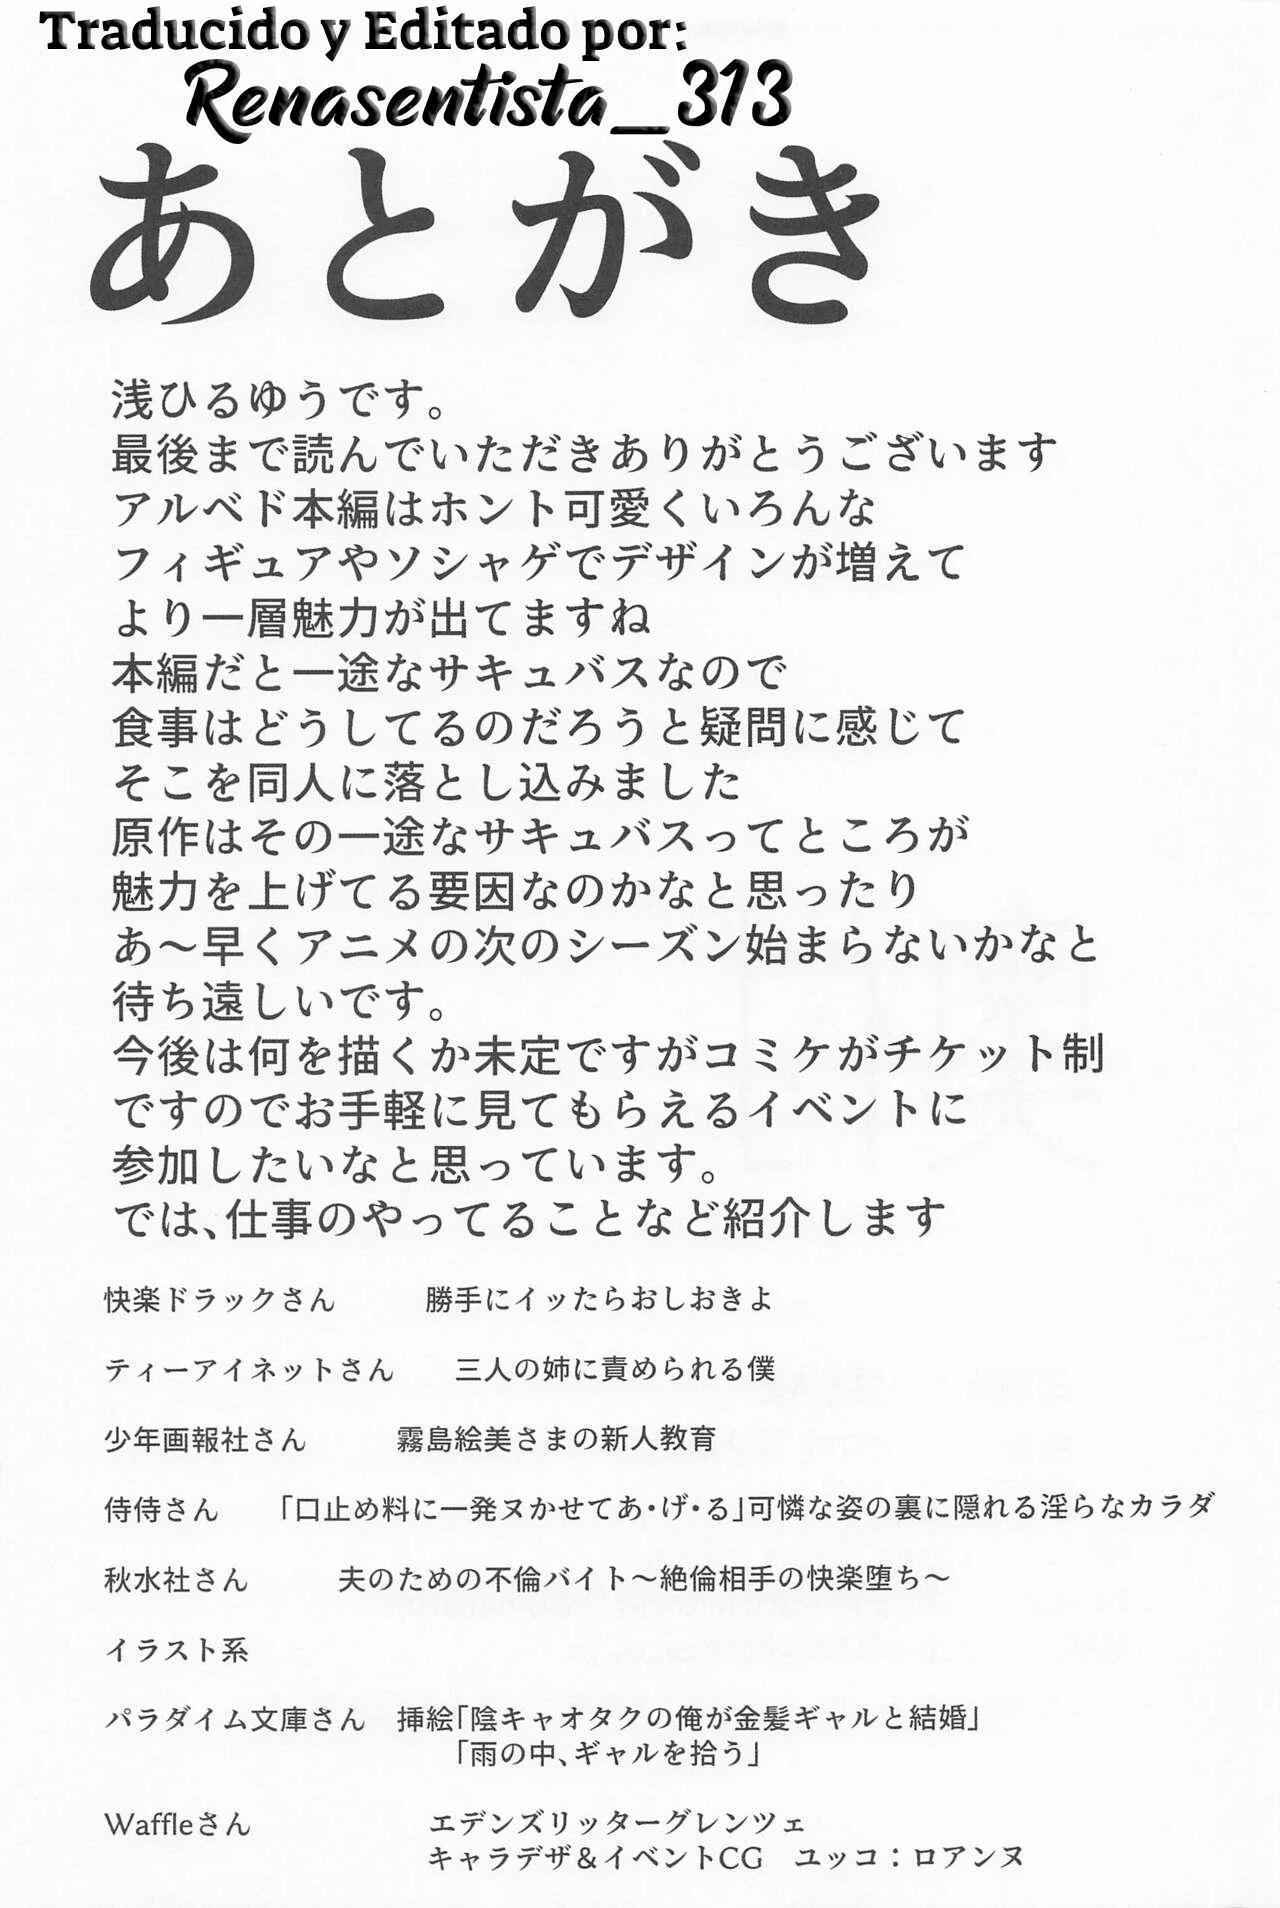 Traducido y Editado por:
Renasentista_313
あとがき
浅ひるゆうです。
最後まで読んでいただきありがとうございます
アルベド本編はホント可愛くいろんな
フィギュアやソシャゲでデザインが増えて
より一層魅力が出てますね
本編だと一途なサキュバスなので
食事はどうしてるのだろうと疑問に感じて
そこを同人に落とし込みました
原作はその一途なサキュバスってところが
魅力を上げてる要因なのかなと思ったり
あ〜早くアニメの次のシーズン始まらないかなと
待ち遠しいです。
今後は何を描くか未定ですがコミケがチケット制
ですのでお手軽に見てもらえるイベントに
参加したいなと思っています。
では、仕事のやってることなど紹介します
快楽ドラックさん　勝手にイッたらおしおきよ
ティーアイネットさん　三人の姉に責められる僕
少年画報社さん　霧島絵美さまの新人教育
侍侍さん　「口止め料に一発ヌかせてあ・げ・る」可憐な姿の裏に隠れる淫らなカラダ
秋水社さん　夫のための不倫バイト〜絶倫相手の快楽堕ち〜
イラスト系
パラダイム文庫さん　挿絵「陰キャオタクの俺が金髪ギャルと結婚」
「雨の中、ギャルを拾う」
Waffleさん　エデンズリッターグレンツェ
キャラデザ＆イベントCG　ユッコ：ロアンヌ